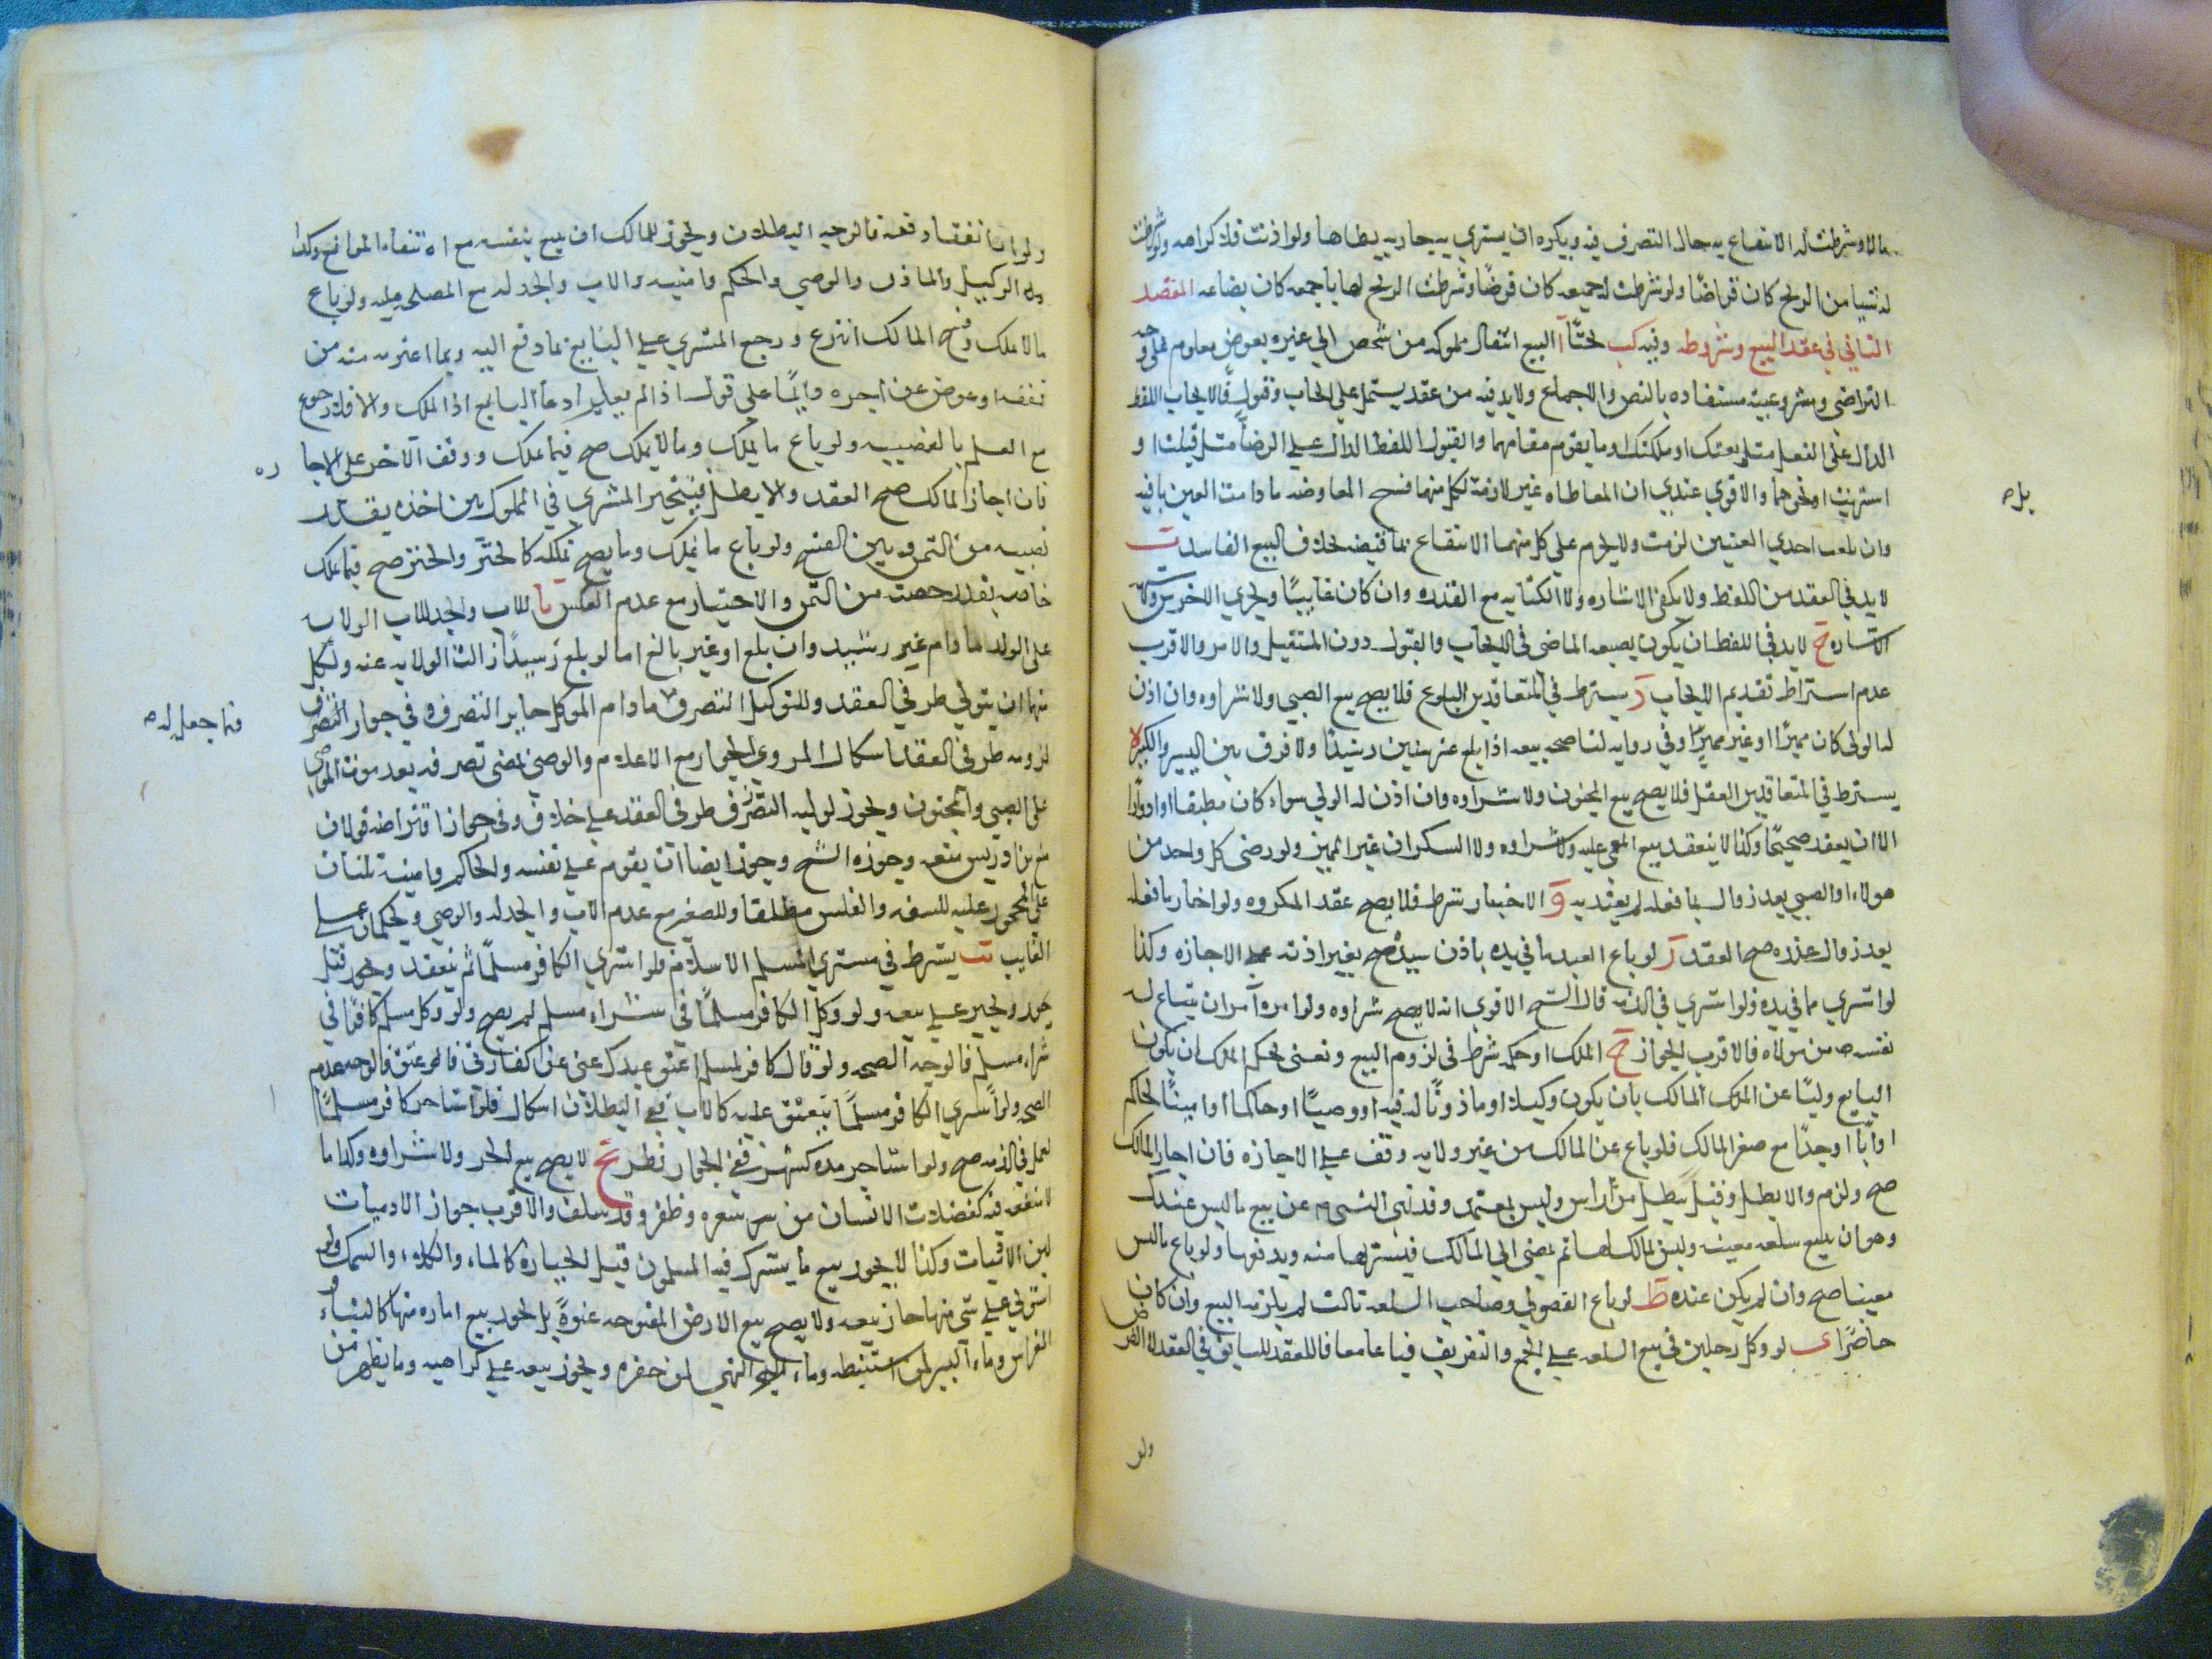 مالا وشرطت له الانتفاع به جاز التصرف فيه ويكره ان يشتري به جاريه يطاها ولو اذنت فلا كراهه ولو شرطت
له شيا من الربح كان قراضا ولو شرطت له جميعه كان قرضا وشرطت الربح لها باجمعه كان بضاعه المقصد
الثاني في عقد البيع وشروطه وفيه كب بحثا آ البيع انتقال مملوكه من شخص الى غيره بعوض معلوم على وجه
التراضي ومشروعيته مستفاده بالنص والاجماع ولا بد فيه من عقد يشتمل على ايجاب وقبول فالايجاب اللفظ
الدال على النقل مثل بعتك او ملكتك او ما يقوم مقامهما والقبول اللفظ الدال على الرضا مثل قبلت او
اشتريت او نحوهما والاقوي عندي ان المعاطاه غير لازمة لكل منهما فسخ المعاوضه ما دامت العين باقيه
بل ه
وان تلفت احدي العينين لزمت ولا يحرم على كل منهما الانتفاع بما قبضه بخلاف البيع الفاسد ب
لا بد في العقد من اللفظ ولا يكفي الاشاره ولا الكتابه مع القدره وان كان غايبا ويجزي الاخرس وشبهه
الاشاره ج لا بد في اللفظ ان يكون بصيغه الماضي في الايجاب والقبول دون المستقبل والامر والاقرب
عدم اشتراط تقديم الايجاب د يشترط في المتعاقدين البلوغ فلا يصح بيع الصبي ولا شراوه وان اذن
له الولى كان مميزا او غير مميز وفي روايه لنا صحه بيعه اذا بلغ عشر سنين رشيدا ولا فرق بين اليسير والكثير ه
يشترط في المتعاقدين العقل فلا يصح بيع المجنون ولا شراوه وان اذن له الولي سواء كان مطبقا او ادوارا
الا ان يعقد صحيحا وكذا لا ينعقد بيع المغمى عليه ولا شراوه ولا السكران غير المميز ولو رضي كل واحد من
هولاء او الصبي بعد زوال ما فعله لم يعتد به و الاختيار شرط فلا يصح عقد المكروه ولو اختار ما فعله
بعد زوال عذره صح العقد ز لو باع العبد ما في يده باذن سيده صح بغير اذنه على الاجازه وكذا
لو اشتري مما في يده فلو اشتري في الذمه قال الشيخ الاقوي انه لا يصح شراوه ولو امره آمر ان يبتاع له
نفسه من مولاه فالاقرب الجواز ح الملك او حكمه شرط في لزوم البيع ونعنى بحكم الملك ان يكون
البايع وليا عن الملك المالك بان يكون وكيلا او ماذونا له فيه او وصيا او حاكما او امينا لحاكم
او ابا او جدا مع صغر المالك فلو باع عن المالك من غير ولايه وقف على الاجازه فان اجاز المالك
صح ولزم والا بطل وقيل يبطل من راس وليس بمعتمد وقد نهى النبي ص عن بيع ما ليس عندك
وهو ان يبيع سلعه معينه وليس بمالك لها ثم يمضي الي المالك فيشتريها منه ويدفعها ولو باع ما ليس
معينا صح وان لم يكن عنده ط لو باع الفضولي وصاحب السلعه ثالث لم يلزمه البيع وان كان
حاضرا ى لو وكل رجلين في بيع السلعه على الجمع والتفريق فباعا معا فاللعقد للسابق في العقد لا القبض
ولو
ولو اتفقا دفعه فالوجه البطلان ويجوز للمالك ان يبيع بنفسه مع انتفاء الموانع وكذا
الوكيل والماذون والوصي والحاكم وامينه والاب والجد له مع المصلحه وله ولو باع
مالا يملك وفسخ المالك انتزع ورجع المشتري على البايع بما دفع اليه وبما اغترمه من
نفقه او عوض عن اجره وانما على قول اذا لم يعلم او ادعا البايع اذا الملك والا فلا رجوع
مع العلم بالغصبيه ولو باع ما يملك وما لا يملك صح فيما يملك ووقف الآخر على الاجا
زه
فان اجاز المالك صح العقد والا بطل فيتخير المشتري في المملوك بين اخذه بقدر
نصيبه من الثمن وبين الفسخ ولو باع ما يملك وما يصح تملكه كالخمر والخنزير صح فيما يملك
خاصه بقدر حصته من الثمن والاختيار مع عدم العكس يا للاب والجد للاب الولايه
على الولد ما دام غير رشيد وان بلغ او غير بالغ اما لو بلغ رشيدا زالت الولايه عنه ولكل
منهما ان يتولي طرفي العقد وللتوكيل التصرف ما دام الموكل جايز التصرف وفي جواز التصرف
فيما جعل له ه
لزومه طرفي العقد اشكال المروي الجواز مع الاعلام والوصي يمضي تصرفه بعد موت الموصي
على الصبي والمجنون ويجوز لوليه التصرف طرفي العقد على خلاف وفي جواز اقتراضه قولان
منع بن ادريس منه وجوزه الشيخ وجوز ايضا ان يقوم على نفسه والحاكم وامينه يليان
على المحجور عليه للسفه والفلس مطلقا وللصغر مع عدم الاب والجد له والوصي ويحكمان على
الغايب يب يشترط في مشتري المسلم الاسلام فلو اشتري الكافر مسلما لم ينعقد وقيل
يجوز ويجبر على بيعه ولو وكل الكافر مسلما في شراء مسلم لم يصح ولو وكل مسلم كافرا في
شراء مسلم فالوجه الصحه ولو قال كافر لمسلم اعتق عبدك عني عن كفارتي فاعتق فالوجه عدم
الصحه ولو اشتري الكافر مسلما يعتق عليه كالاب ففي البطلان اشكال فلو استاجر كافر مسلما
لعمل في الذمه صح ولو استاجر مده كشهر ففي الجواز نظر يج لا يصح بيع الحر ولا شراوه وكذا ما
لا منفعه فيه كفضلات الانسان من شعره وظفره وقد سلف والاقرب جواز الادميات
لبن الاقيات وكذا لا يجوز بيع ما يشترك فيه المسلمون قبل الحيازه كالماء والكلاء والسمك ولو
استولي على شى منها جاز بيعه ولا يصح بيع الارض المفتوحه عنوة بل يجوز بيع اثاره منها كالبناء و
الغراس وماء البير لمن استنبطه وماء النهر لمن حفره ويجوز بيعه على كراهيه وما يظهر من